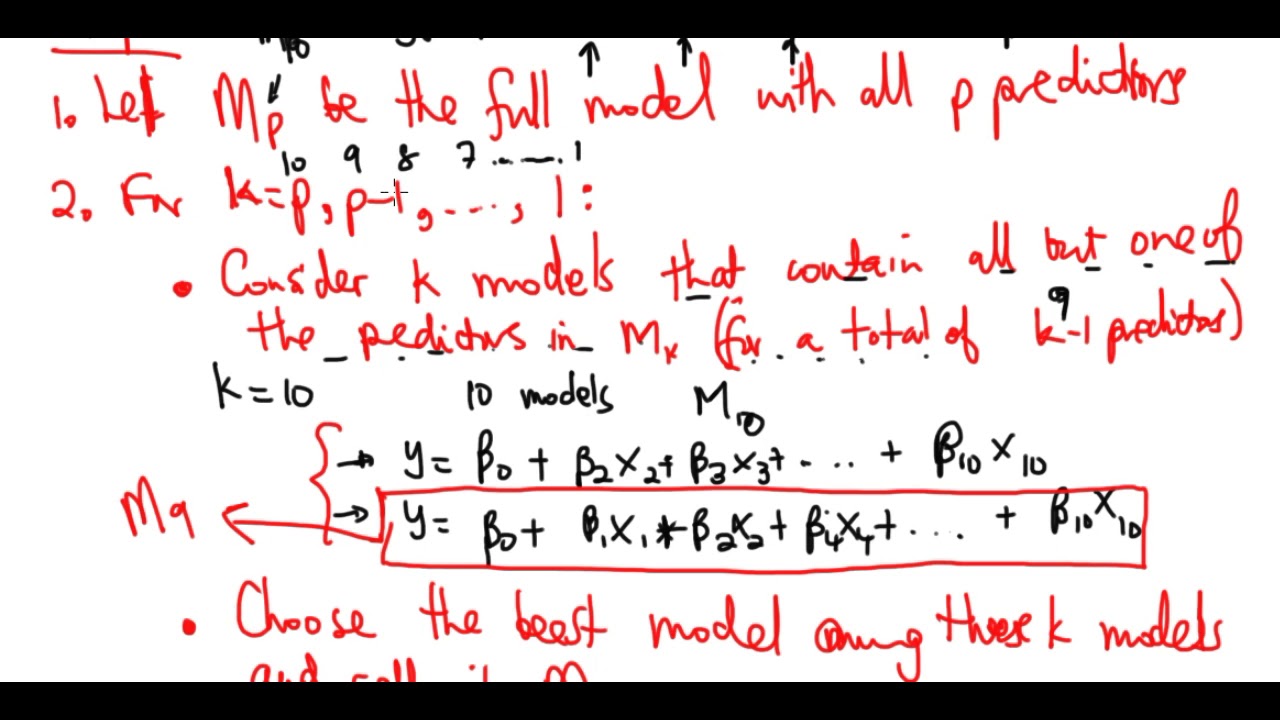 1. Let Mp be the full model with all p predictors
10 9 8 7 ....... 1
2. For k=p, p-1, ...., 1:
• Consider k models that contain all but one of
9
the pedictors in Mk (for a total of k-1 predictors)
k = 10 10 models M10
→ y = β0 + β2X2 + β3X3 + .... + β10X10
M9 → y = β0 + β1X1 + β2X2 + β4X4 + .... + β10X10
• Choose the best model among these k models
and call it M